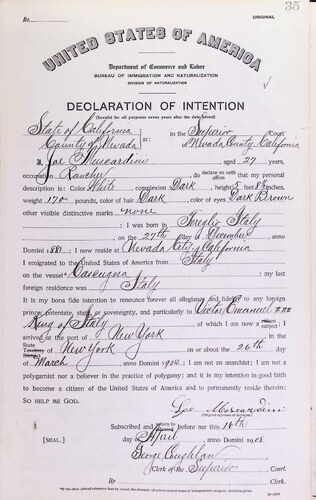 35
No. ORIGINAL
UNITED STATES OF AMERICA
Department of Commerce and Labor
BUREAU OF IMMIGRATION AND NATURALIZATION
DIVISION OF NATURALIZATION
DECLARATION OF INTENTION
(Invalid for all purposes seven years after the date hereof)
State of California
County of Nevada ss: In the Superior Court of Nevada County, California
I, Joe Muscardini, aged 27 years,
occupation Rancher, do declare on oath affirm that my personal
description is: Color White, complexion Dark, height 5 feet 8½ inches,
weight 170 pounds, color of hair Dark, color of eyes Dark Brown
other visible distinctive marks none
I was born in Italy
on the 27th day of December, anno
Domini 1881; I now reside at Nevada City, California
I emigrated to the United States of America from Italy
on the vessel; my last
foreign residence was Italy
It is my bona fide intention to renounce forever all allegiance and fidelity to any foreign
prince, potentate, state, or sovereignty, and particularly to Victor Emanuel III
King of Italy, of which I am now a citizen subject; I
arrived at the port of New York, in the
State Territory District of New York on or about the 26th day
of March, anno Domini 1904; I am not an anarchist; I am not a
polygamist nor a believer in the practice of polygamy; and it is my intention in good faith
to become a citizen of the United States of America and to permanently reside therein:
SO HELP ME GOD.
Moscardini
(Original signature of declarant)
Subscribed and sworn to before me this 16th
[SEAL.] day of April, anno Domini 1908.
George Coughlan
Clerk of the Superior Court.